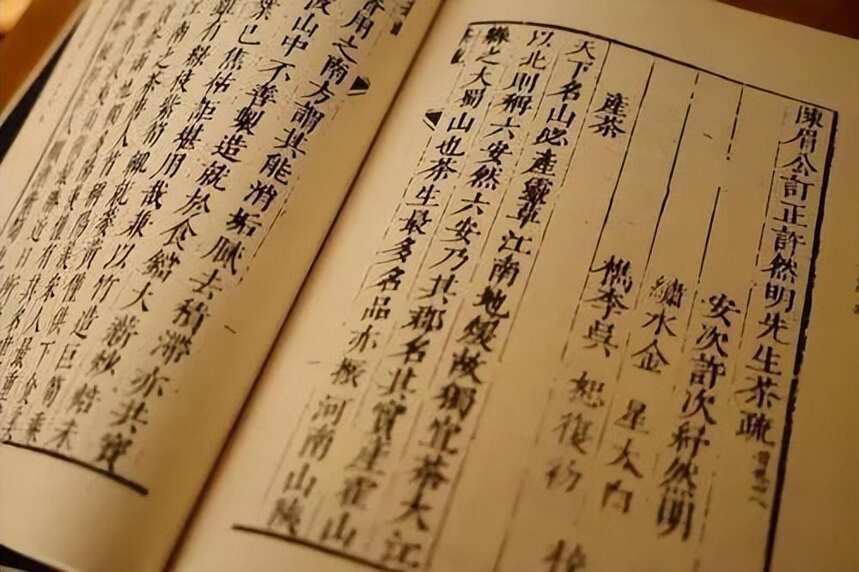 陳眉公訂正許然明先生茶疏
安次許次紓然明
繡水金 星太白
檇李吳 恕復初
產茶
天下名山必產靈草江南地煖故獨宜茶大江
以北則稱六安然六安乃其郡名其實產霍山
縣之大蜀山也茶生最多名品亦振河南山陝
用之南方謂其能消垢膩去積滯亦共寶
彼山中不善製造就於食鐺大薪炒焙未
已焦枯詎堪用哉兼以竹造巨笱乘
雖有綠枝紫筍輒就萎黃僅供下食
江南之茶唐人首稱陽羨